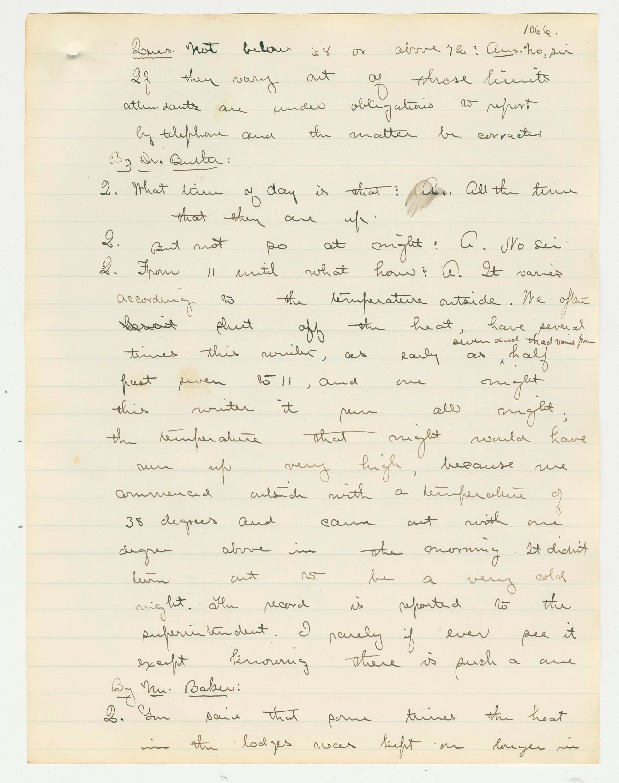 1066.
Ques. Not below 68 or above 72? Ans. No, sir
If they vary out of those limits
attendants are under obligations to report
by telephone and the matter be corrected
By Dr. Butler:
Q. What time of day is that? A. All the time
that they are up.
Q. But not so at night? A. No sir
Q. From 11 until what hour? A. It varies
according to the temperature outside. We often
shut off the heat, have several
seven and that varies from
times this winter, as early as half
past seven to 11, and one night
this winter it run all night;
the temperature that night would have
run up very high, because we
commenced outside with a temperature of
38 degrees and came out with one
degree above in the morning. It didn't
turn out to be a very cold
night. The record is reported to the
superintendent. I rarely if ever see it
except knowing there is such a one
By Mr. Baker:
Q. You said that some times the heat
in the lodges was kept on longer in